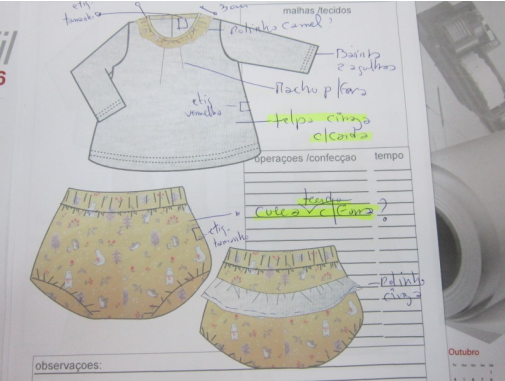 etiq
tamanho
3 cm
malhas /tecidos
Polinho (camel)
Bainha
2 agulhas
Macho p/ fora
etiq
vermelha
felpa cinza
c/ carda
6
operaçoes /confecção
tempo
?
etiq.
tamanho
Polinho
cinza
observaçoes:
Outubro